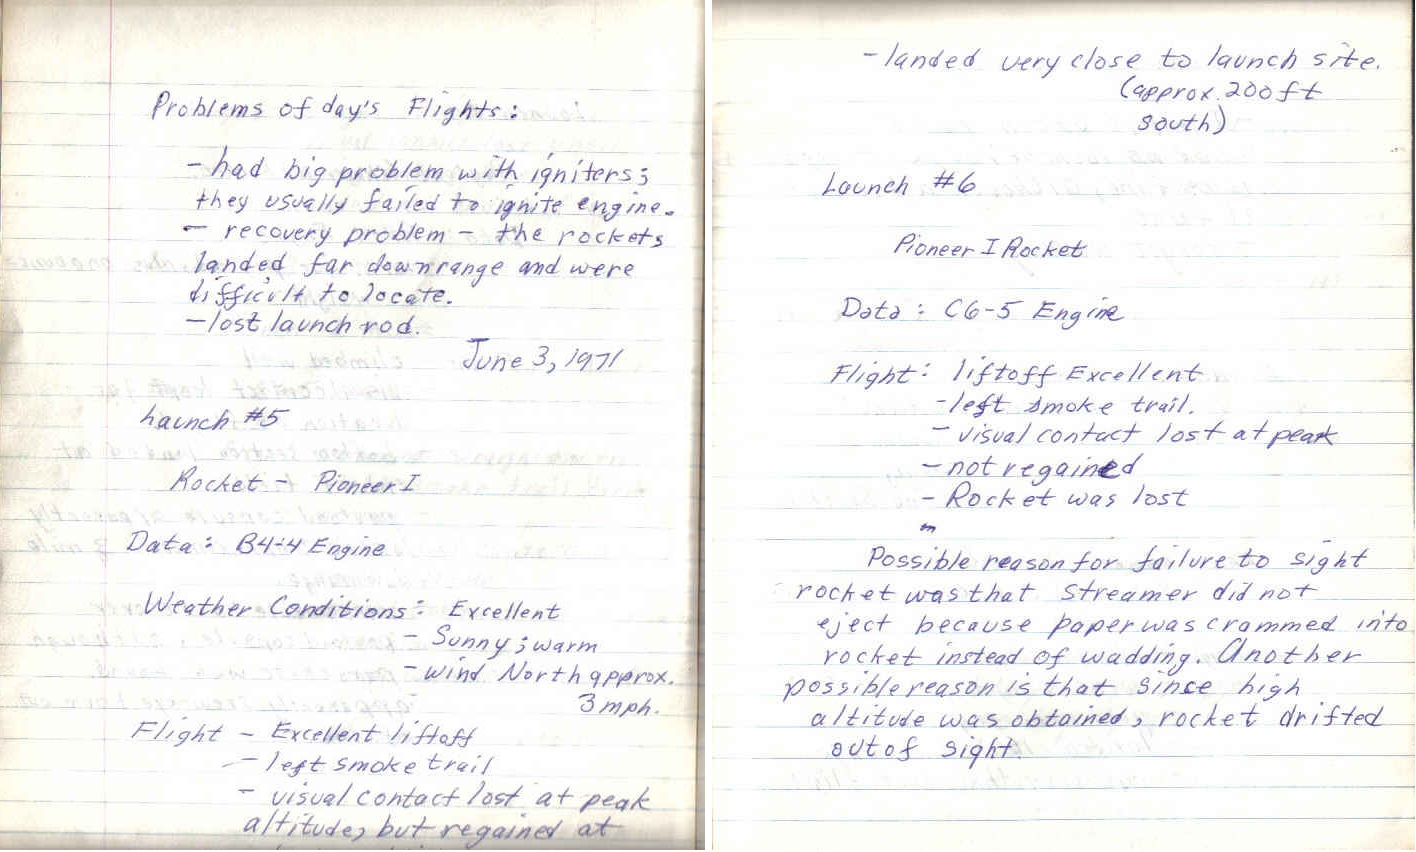 Problems of day's Flights:
- had big problem with igniters;
they usually failed to ignite engine.
- recovery problem - the rockets
landed far downrange and were
difficult to locate.
- lost launch rod.
June 3, 1971
Launch #5
Rocket - Pioneer I
Data: B4-4 Engine
Weather Conditions: Excellent
- Sunny; warm
- wind North approx.
3 mph.
Flight - Excellent liftoff
- left smoke trail
- visual contact lost at peak
altitude, but regained at
- landed very close to launch site.
(approx. 200 ft
south)
Launch #6
Pioneer I Rocket
Data: C6-5 Engine
Flight: liftoff Excellent
- left smoke trail.
- visual contact lost at peak
- not regained
- Rocket was lost
Possible reason for failure to sight
rocket was that streamer did not
eject because paper was crammed into
rocket instead of wadding. Another
possible reason is that since high
altitude was obtained, rocket drifted
out of sight.